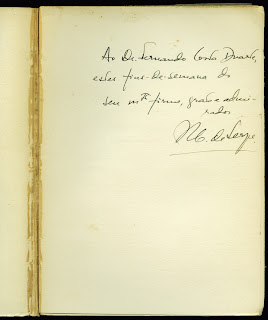 Ao Dr. Fernando Costa Duarte,
estes fins-de-semana do
seu mtº firme, grato e admi-
rador